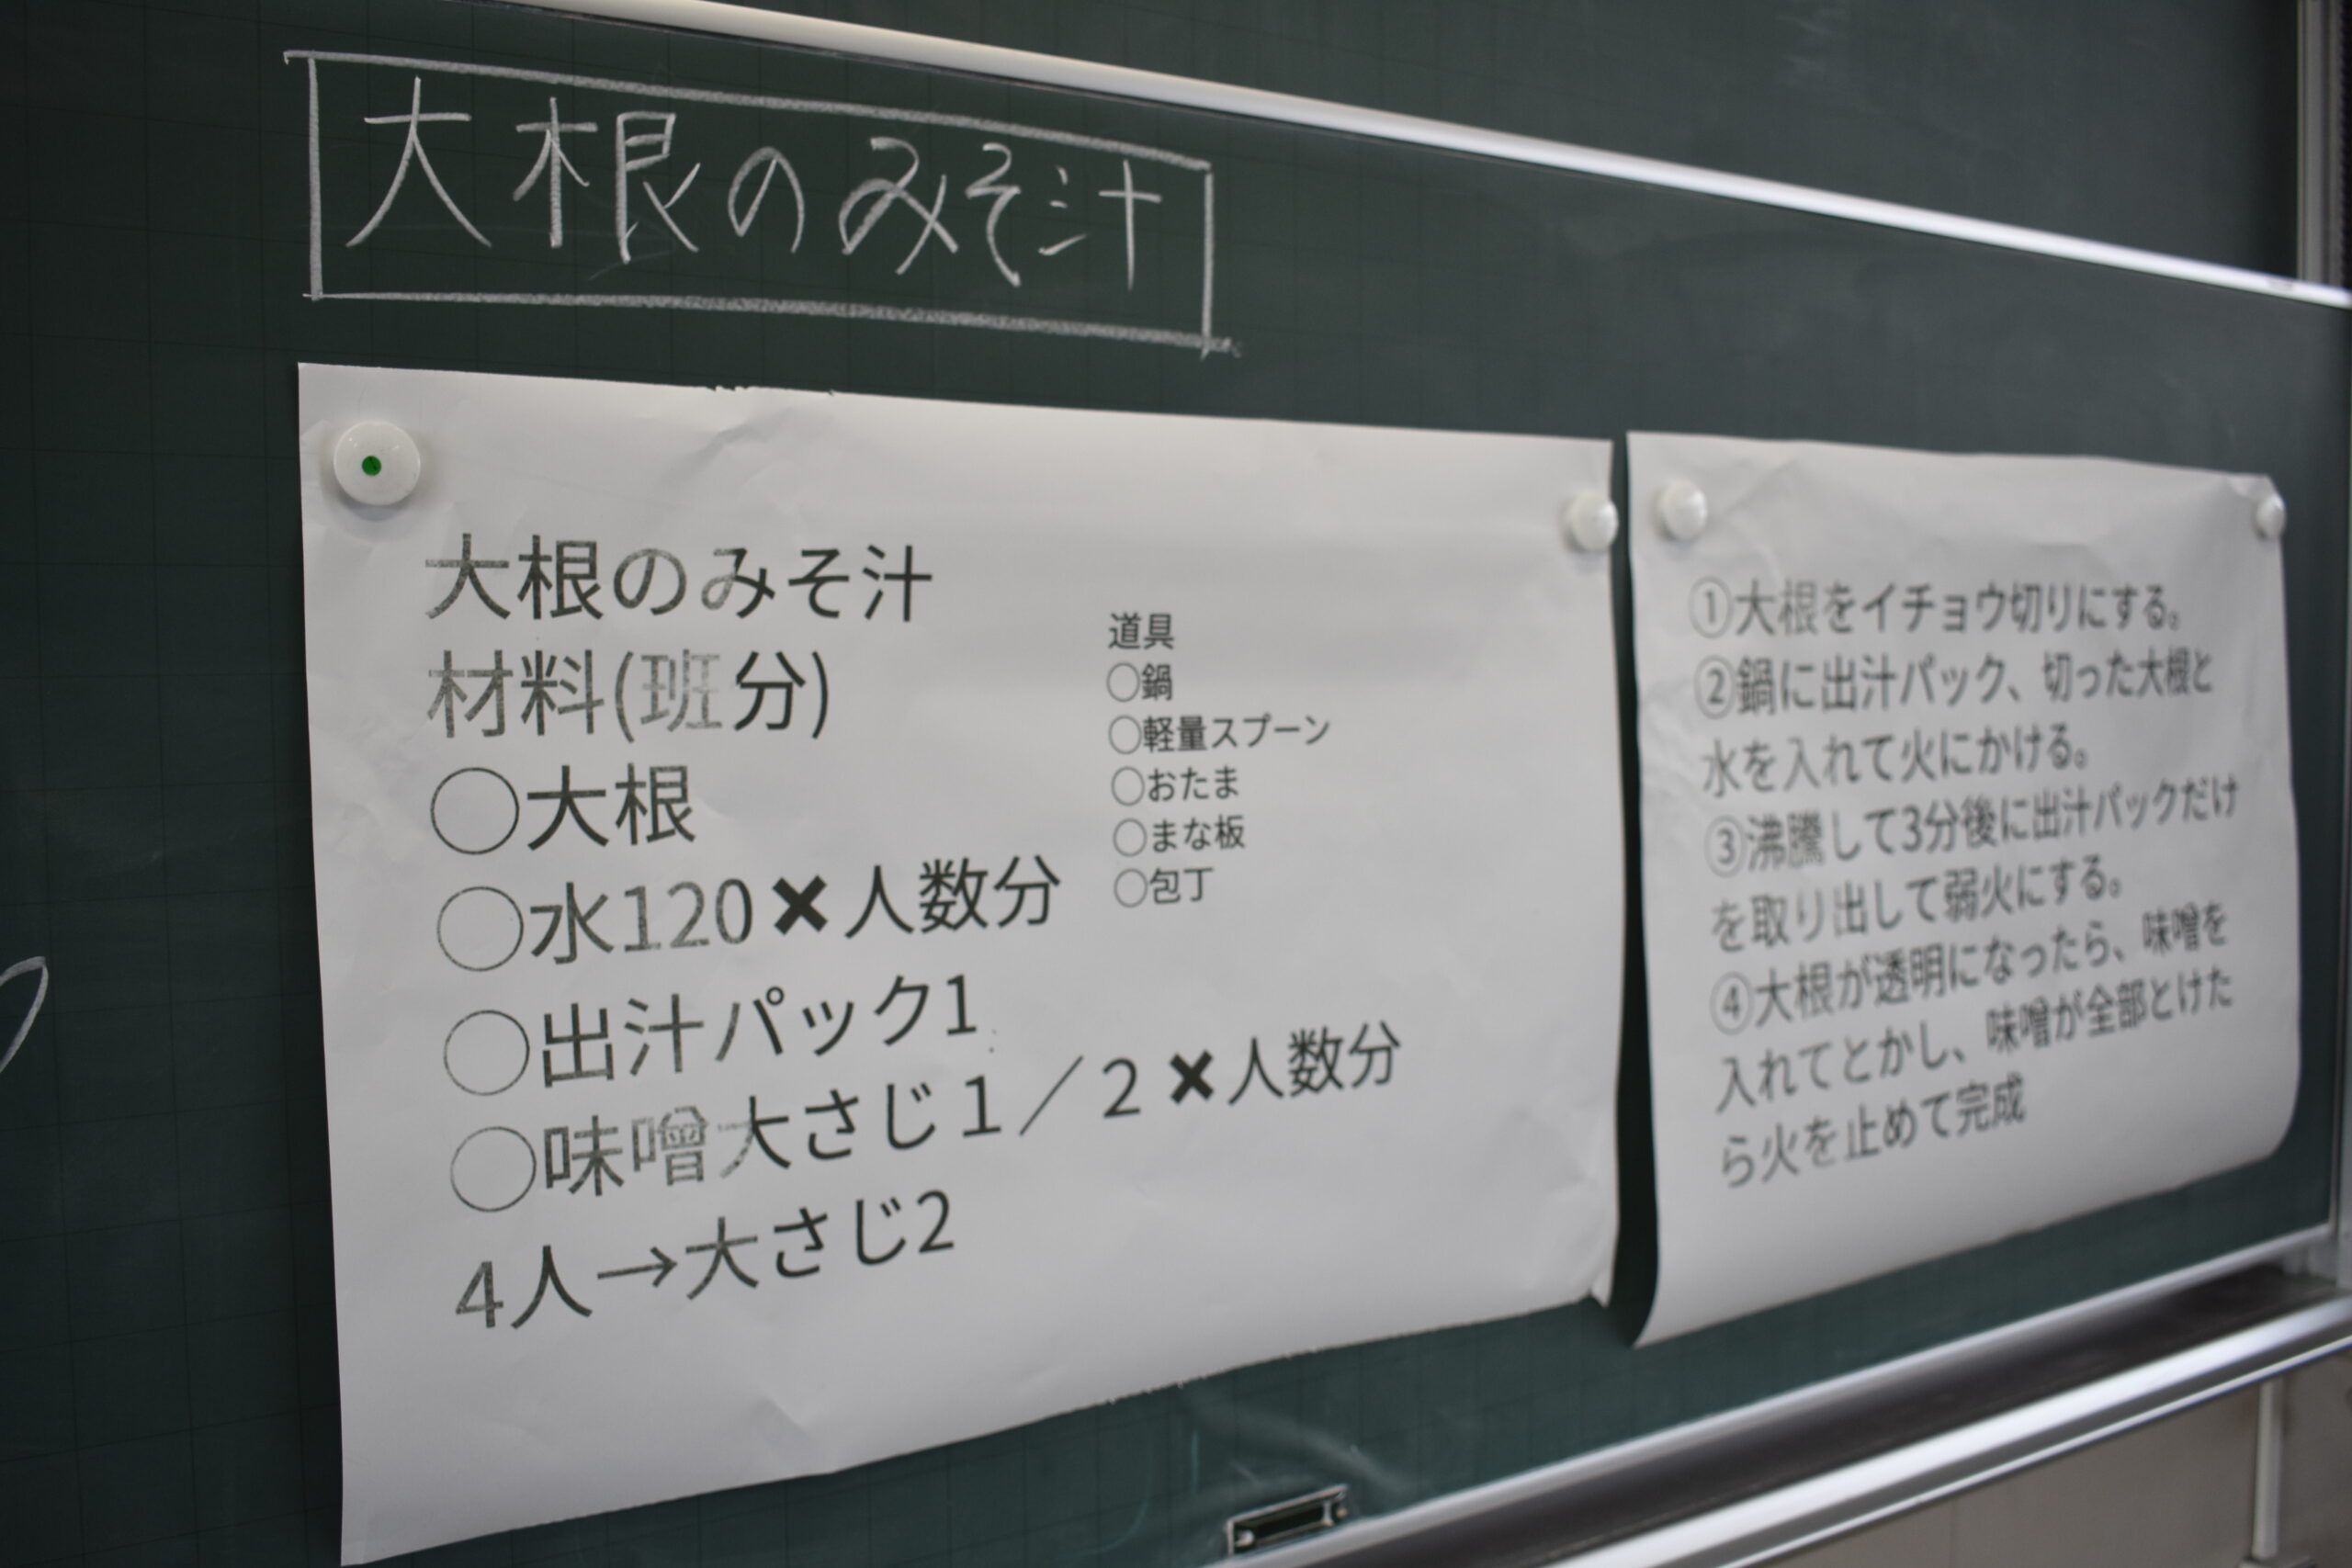 大根のみそ汁
大根のみそ汁
材料(班分)
○大根
○水120✖人数分
○出汁パック1
○味噌大さじ１／２✖人数分
4人→大さじ2
道具
○鍋
○軽量スプーン
○おたま
○まな板
○包丁
①大根をイチョウ切りにする。
②鍋に出汁パック、切った大根と
水を入れて火にかける。
③沸騰して3分後に出汁パックだけ
を取り出して弱火にする。
④大根が透明になったら、味噌を
入れてとかし、味噌が全部とけた
ら火を止めて完成